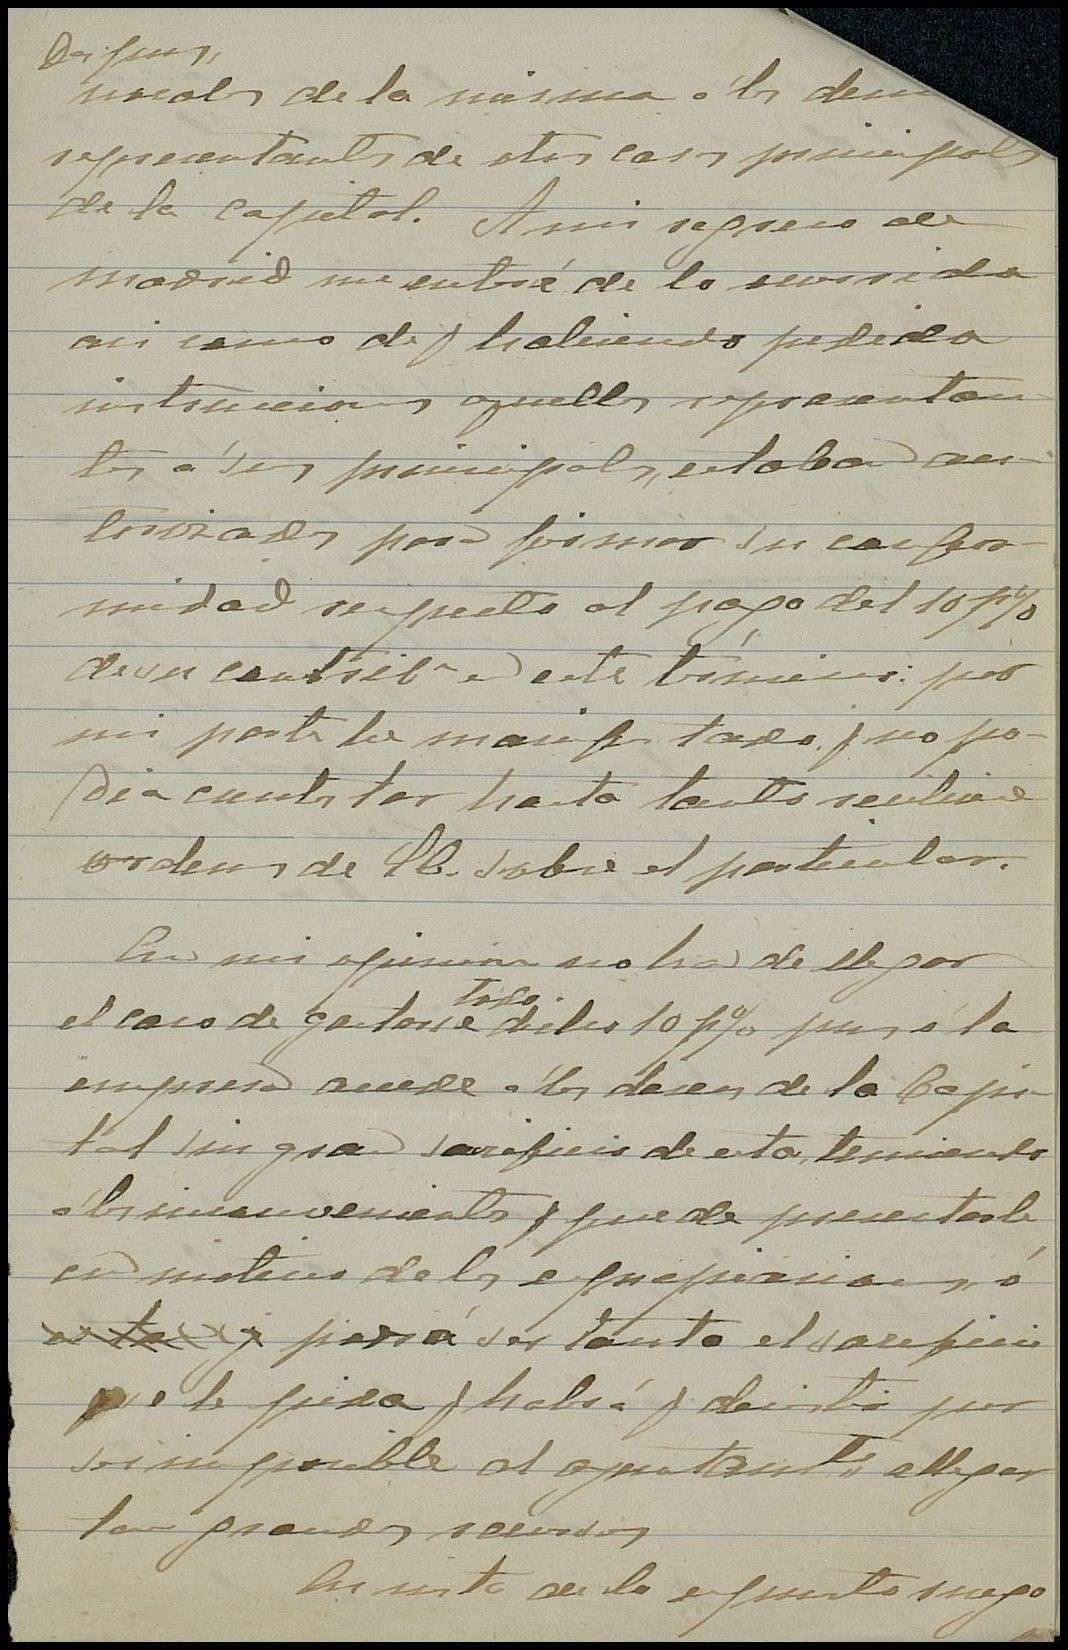 Despues,
vocales de la misma á los dem
representantes de otras casas principales
de la capital. A mi regreso de
Madrid me enteré de lo ocurrido
asi como de q habiendo pedido
instrucciones aquellos representan-
tes á sus principales, estaban au-
torizados para firmar su confor-
midad respecto al pago del 10 p%
de su contribn en este término: por
mi parte he manifestado q no po-
dia contestar hasta tanto recibiera
ordenes de V. sobre el particular.
En mi opinion no ha de llegar
el caso de gastarse todo dicho 10 p% pues ó la
empresa accede á los deseos de la Capi-
tal sin gran sacrificio de esta, temiendo
á los inconvenientes q puede presentarle
con motivo de las expropiaciones, ó
podrá ser tanto el sacrificio
que le pida q habrá q desistir por
ser imposible al ayuntamto allegar
tan grandes recursos
En vista de lo expuesto ruego